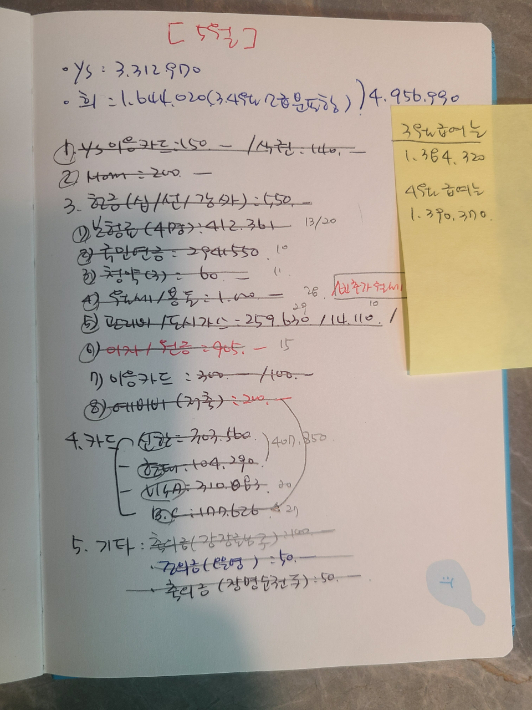 [5월]
· YS : 3.312.970
· 회 : 1.644.020 (3.4월 급분포함) ) 4.956.990
3월 급여는
1.384.320
4월 급여는
1.390.370.
① YS 이응카드 : 150. — / 식권 : 140. —
② Mom : 200 —
3. 헌금 (십/선/감/) : 550. —
① 보험료 (4명) : 412.361 13/20
② 국민연금 : 294.550 10
③ 청약 (3) : 60. — 11
④ 월세/용돈 : 1.000 — 28
⑤ 관리비/도시가스 : 259.630 / 14.110. / 29 10
⑥ 이자/원금 : 905. — 15
7) 이응카드 : 300. — /100. —
⑧ 예비비 (저축) : 200.
4. 카드 신한 : 303.560 ) 407.850
현대 : 104.290
VISA : 310.863 20
B.C : 177.626 27
5. 기타 : 축의금 : 100. —
· (은영) : 50. —
· 축의금 (장명순전주) : 50. —